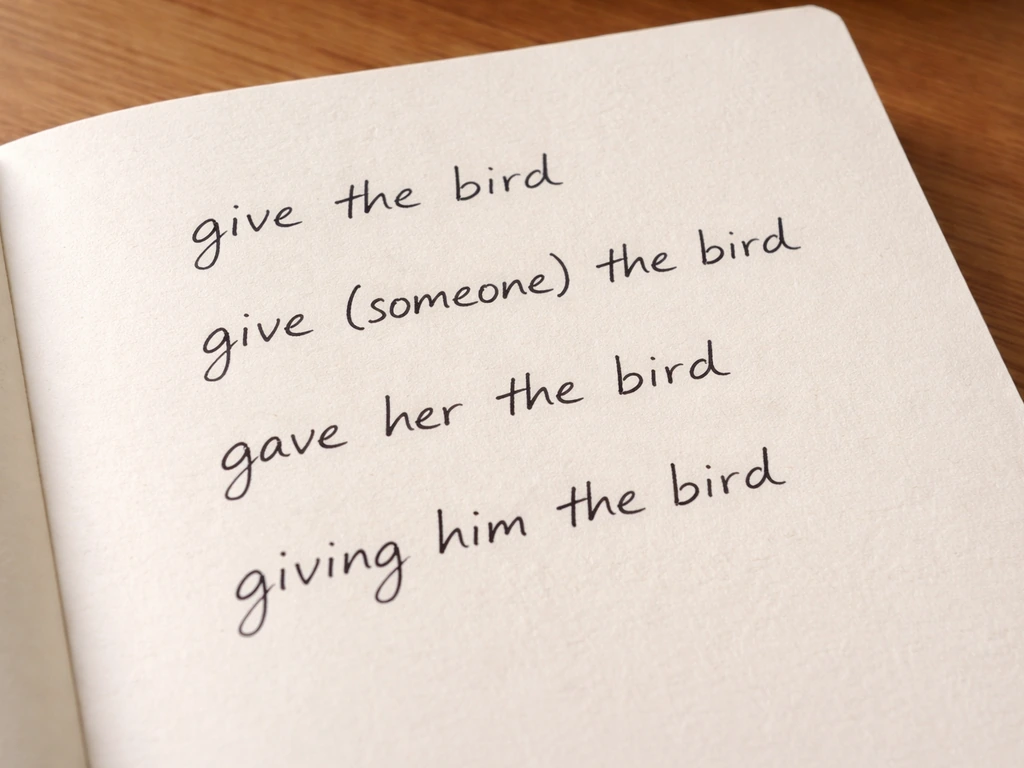 give the bird
give (someone) the bird
gave her the bird
giving him the bird